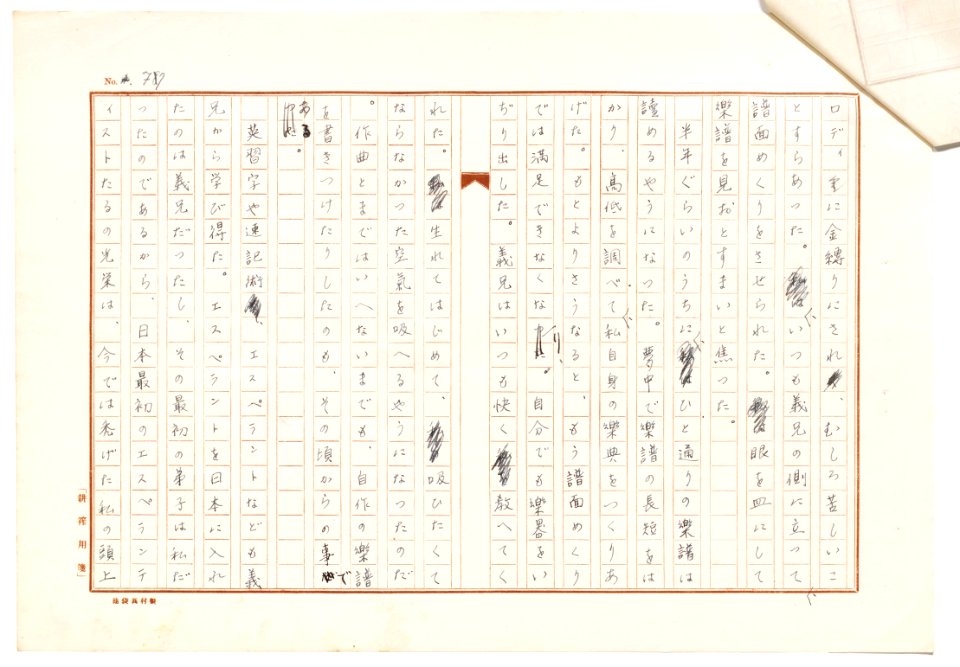 No. 
ロディーに金縛りにされ、むしろ苦しいこ
とすらあつた。いつも義兄の側に立つて
譜面めくりをさせられた。眼を皿にして
樂譜を見おとすまいと焦つた。
半年ぐらいのうちにひと通りの樂譜は
讀めるやうになつた。夢中で樂譜の長短をは
かり、高低を調べて私自身の樂典をつくりあ
げた。もとよりさうなると、もう譜面めくり
では満足できなくなり、自分でも樂器をい
ぢり出した。義兄はいつも快く教へてく
れた。生れてはじめて、吸ひたくて
ならなかつた空氣を吸へるやうになつたのだ
。作曲とまではいへないまでも、自作の樂譜
を書きつけたりしたのも、その頃からの事で
ある。
英習字や速記術、エスペラントなども義
兄から学び得た。エスペラントを日本に入れ
たのは義兄だつたし、その最初の弟子は私だ
つたのであるから、日本最初のエスペランテ
ィストたるの光栄は、今では禿げた私の頭上
「耕筰用箋」